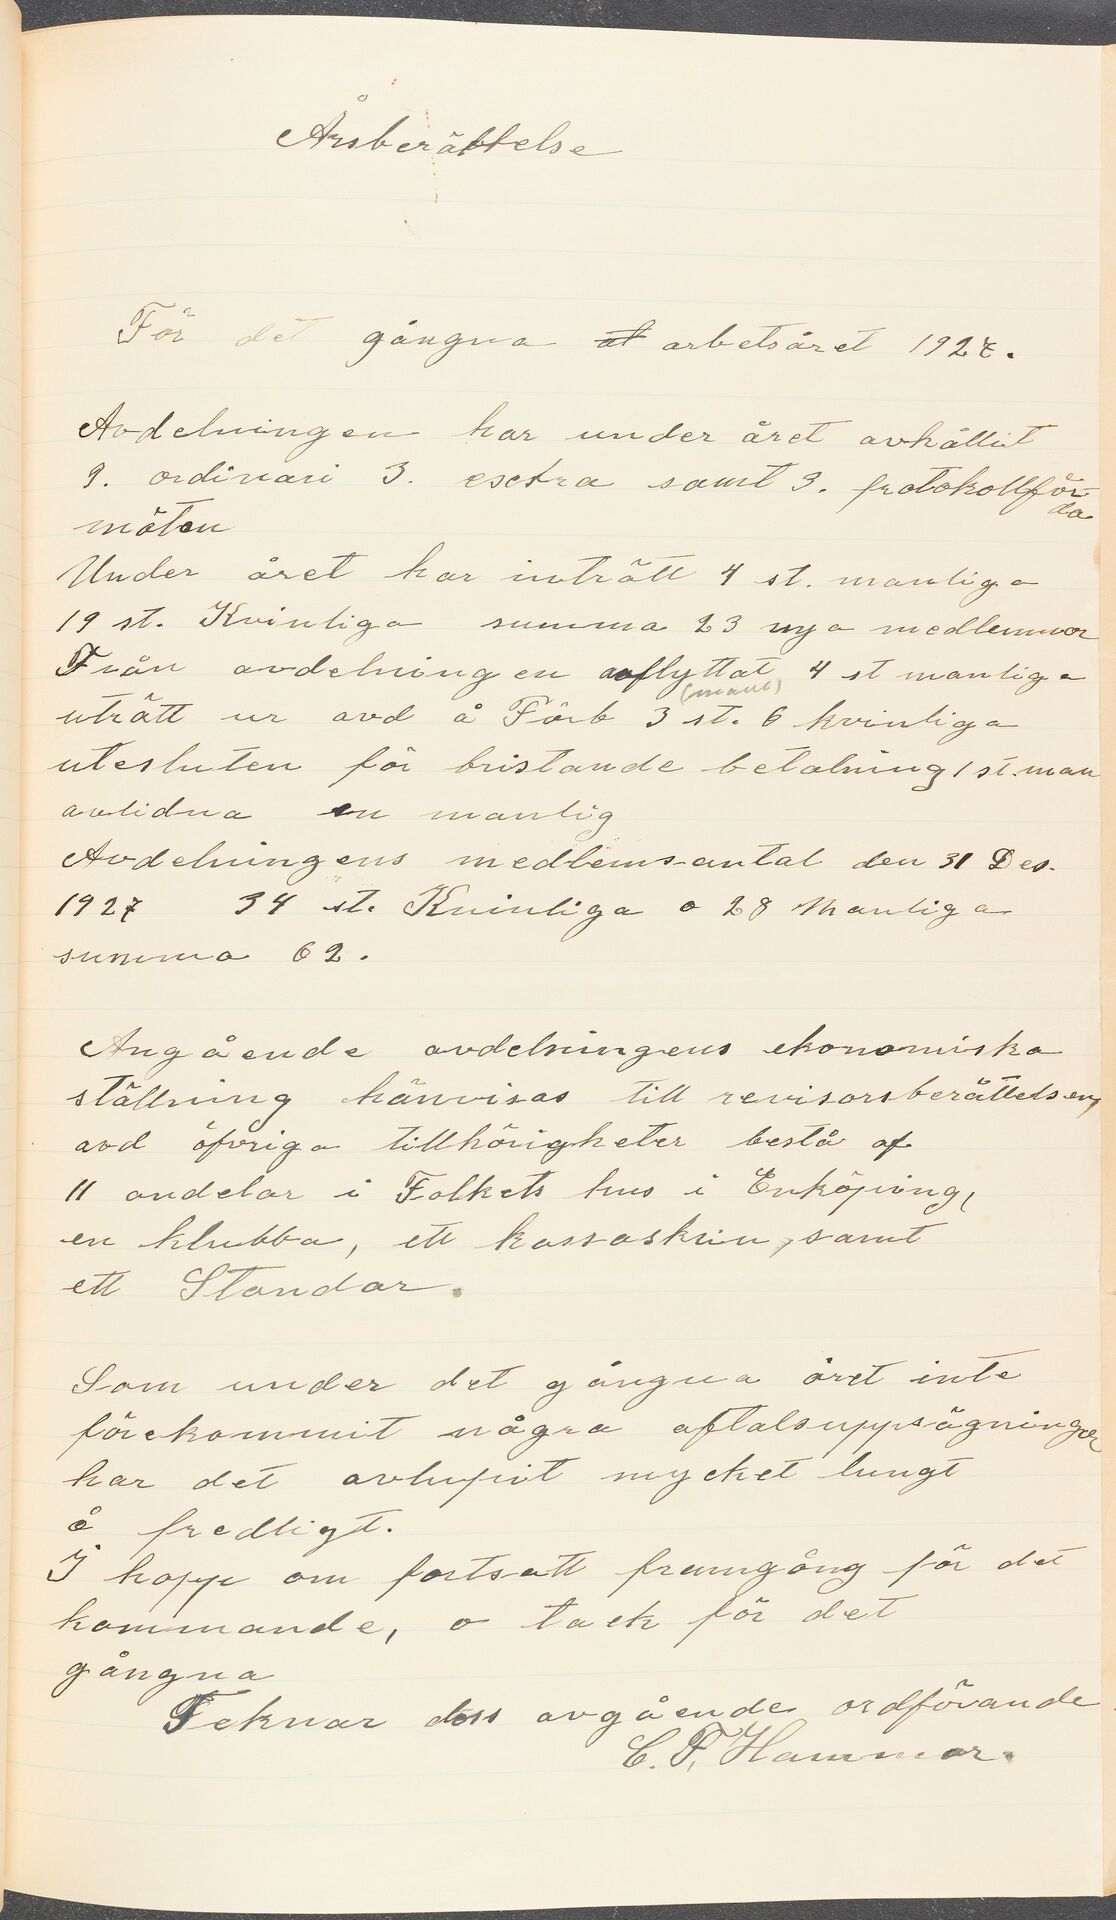 Årsberättelse
För det gångna at arbetsåret 1927.
Avdelningen har under året avhållit
9. ordinari 3. esctra samt 3. protokollförda
möten
Under året har inträtt 4 st. manliga
19 st. Kvinliga summa 23 nya medlemmor
Från avdelningen avflyttat 4 st manliga
uträtt ur avd å Förb 3 (manl) st. 6 kvinliga
utesluten för bristande betalning 1 st. man
avlidna en manlig
Avdelningens medlemsantal den 31 Des.
1927 34 st. Kvinliga o 28 Manliga
summa 62.
Angående avdelningens ekonomiska
ställning hänvisas till revisorsberättelsen,
avd öfvriga tillhörigheter bestå af
11 andelar i Folkets hus i Enköping,
en klubba, ett kassaskrin, samt
ett Standar.
Som under det gångna året inte
förekommit några aftalsuppsägningar
har det avlupit mycket lungt
å fredligt.
I hopp om fortsatt framgång för det
kommande, o tack för det
gångna
Teknar dess avgående ordförande
C. F. Hammar.